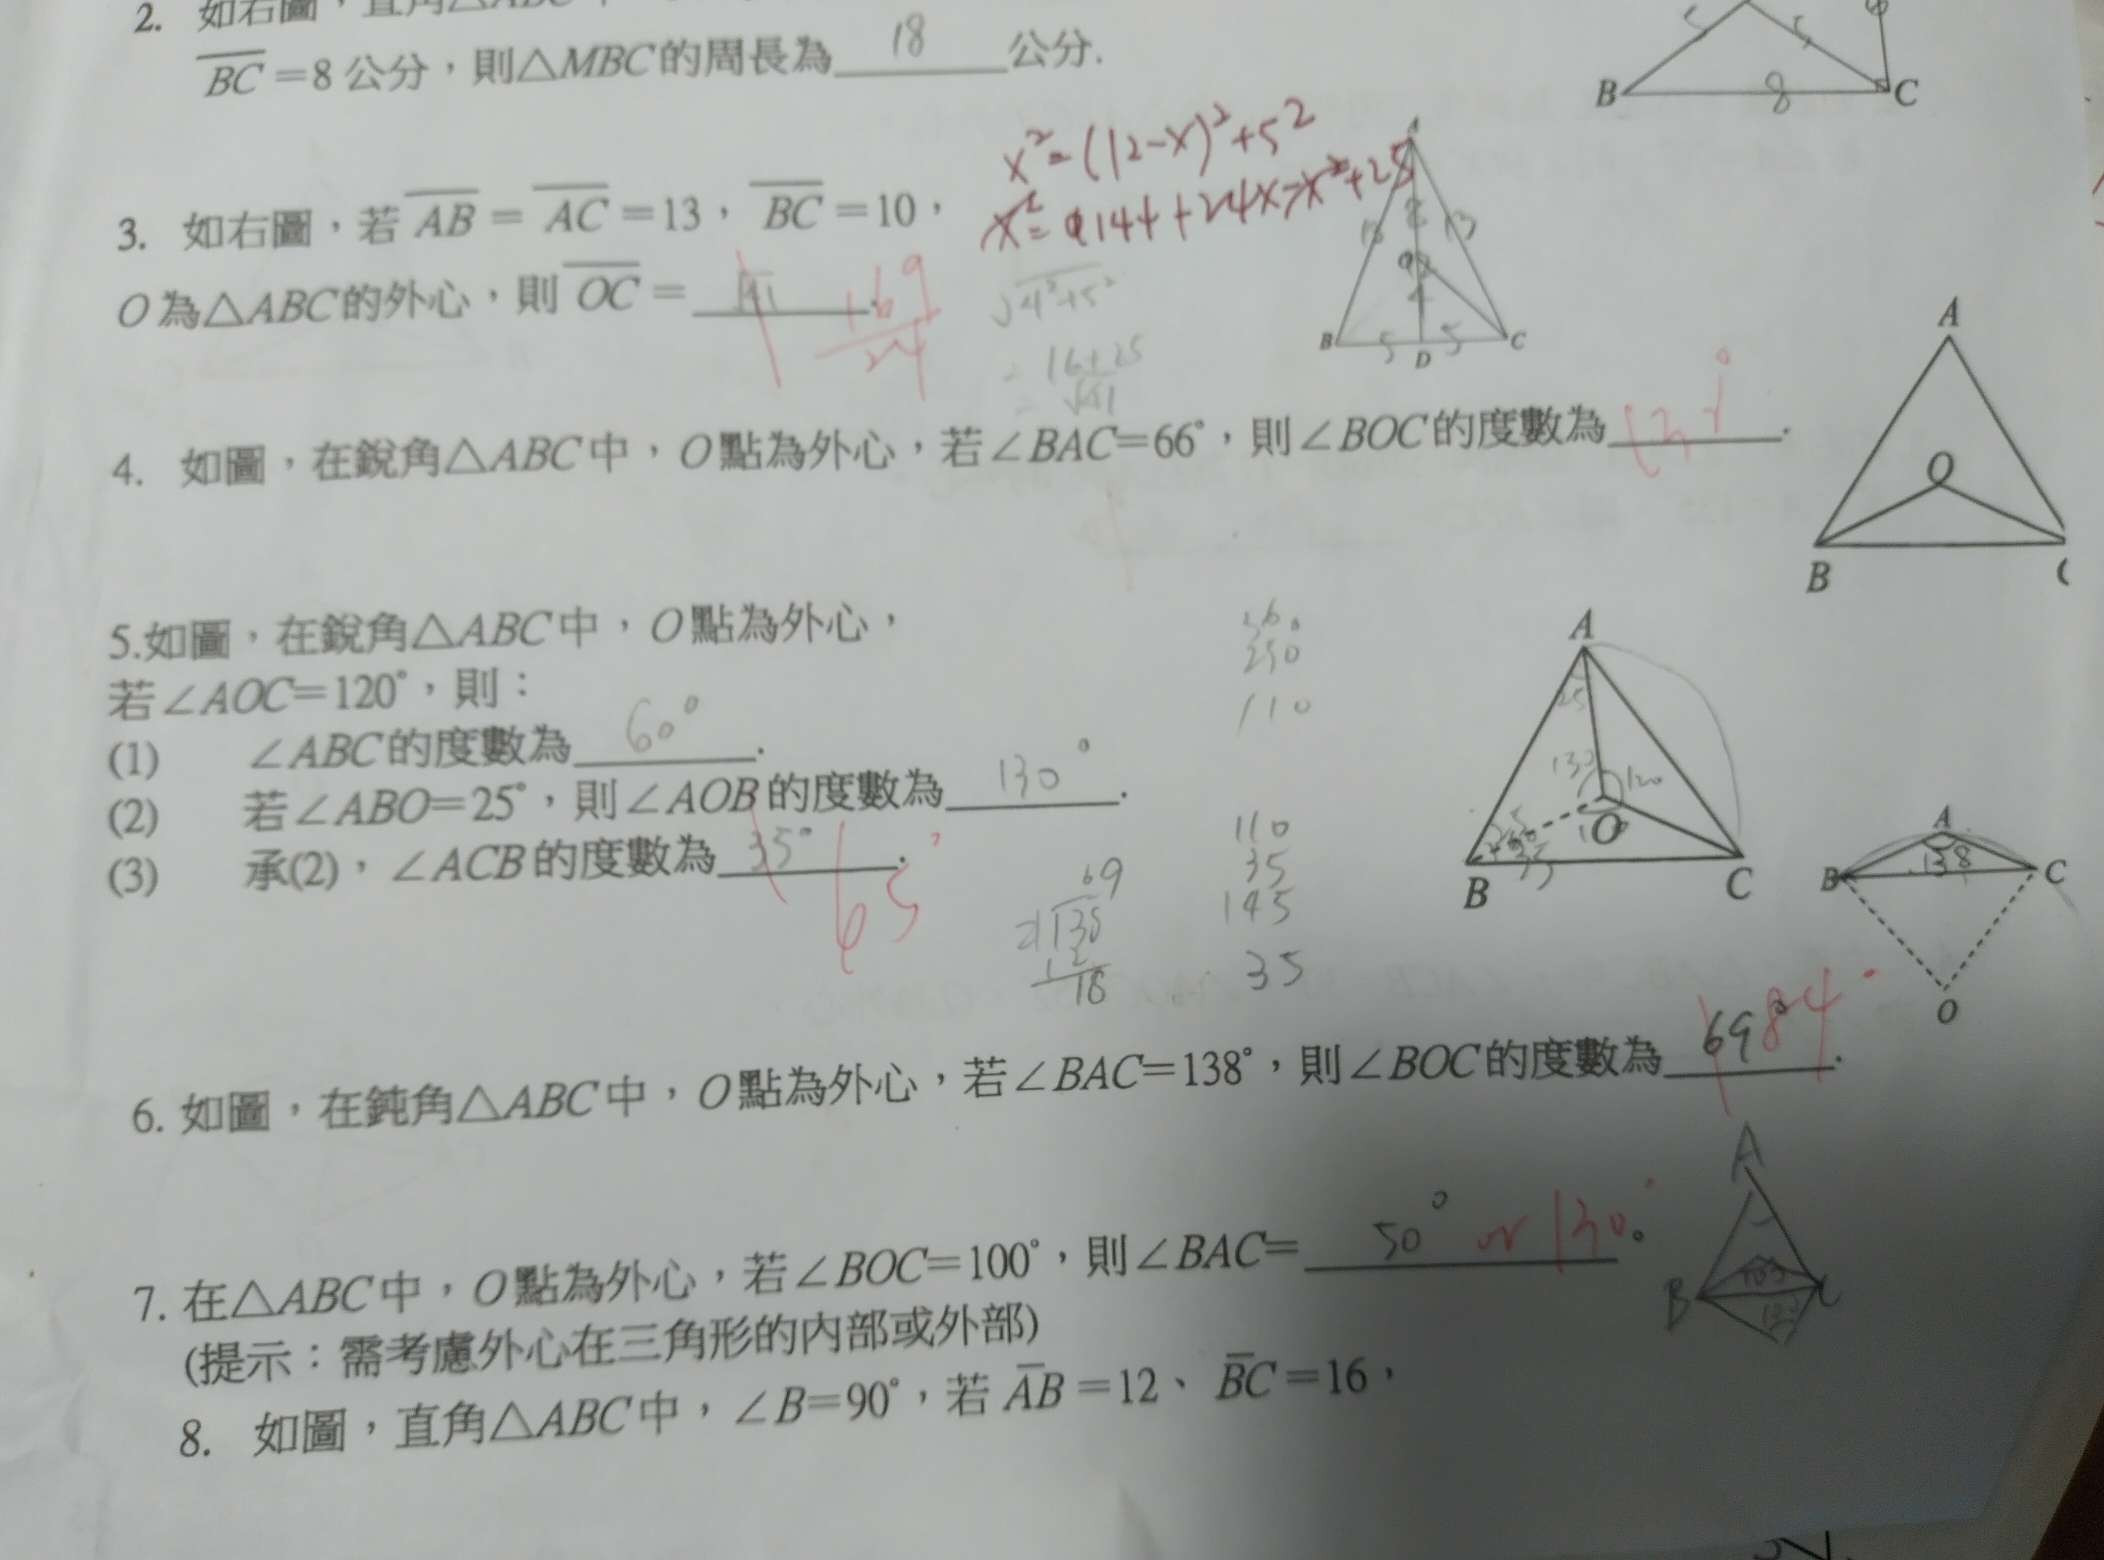 2. 如右圖，直角△ABC
BC=8公分，則△MBC的周長為 18 公分.
B 8 C
x²=(12-x)²+5²
3. 如右圖，若 AB = AC =13， BC =10，
x²=144+24x-x²+25
O為△ABC的外心，則 OC = √41 169/24
√4²+5²
= 16+25
= √41
A 13 O 4 B 5 D 5 C
4. 如圖，在銳角△ABC中，O點為外心，若∠BAC=66°，則∠BOC的度數為 .
A O B
5.如圖，在銳角△ABC中，O點為外心，
若∠AOC=120°，則：
360
250
110
(1) ∠ABC的度數為 60° .
(2) 若∠ABO=25°，則∠AOB的度數為 130° .
(3) 承(2)，∠ACB的度數為 35° . 65°
A 25 130 120 O B 35 C
110
35
145
35
69
2138
12
18
A B 138 C O
6. 如圖，在鈍角△ABC中，O點為外心，若∠BAC=138°，則∠BOC的度數為 69 84° .
7. 在△ABC中，O點為外心，若∠BOC=100°，則∠BAC= 50° or 130° 。
(提示：需考慮外心在三角形的內部或外部)
A B C
8. 如圖，直角△ABC中，∠B=90°，若 AB =12、 BC =16，